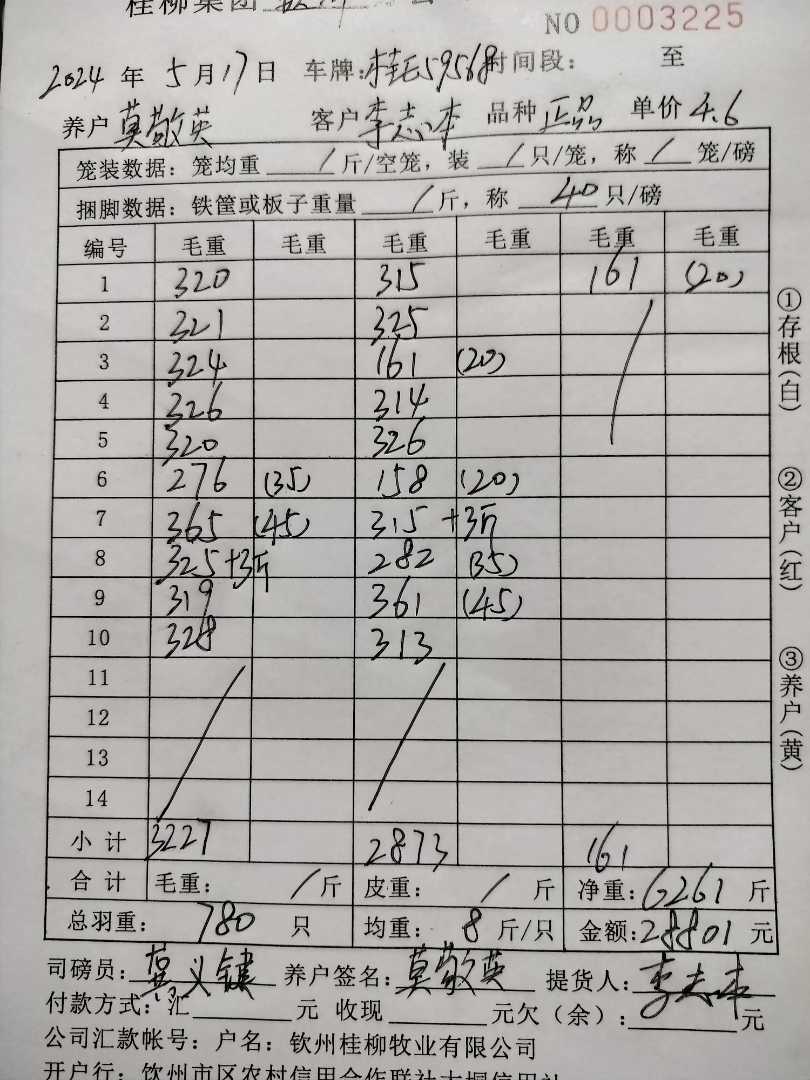 桂柳集团
NO 0003225
2024 年 5 月 17 日 车牌:桂E59568 时间段: 至
养户 莫敬英 客户 李志本 品种 正品 单价 4.6
笼装数据: 笼均重 / 斤/空笼, 装 / 只/笼, 称 / 笼/磅
捆脚数据: 铁筐或板子重量 / 斤, 称 40 只/磅
编号 毛重 毛重 毛重 毛重 毛重 毛重
1 320 315 161 (20)
2 321 325
3 324 161 (20)
4 326 314
5 320 326
6 276 (35) 158 (20)
7 365 (45) 315 +3斤
8 325 +3斤 282 (35)
9 319 361 (45)
10 328 313
11
12
13
14
小计 3227 2873 161
合计 毛重: / 斤 皮重: / 斤 净重: 6261 斤
总羽重: 780 只 均重: 8 斤/只 金额: 28801 元
司磅员: 义 养户签名: 莫敬英 提货人: 李志本
付款方式: 汇 元 收现 元欠(余): 元
公司汇款帐号: 户名: 钦州桂柳牧业有限公司
开户行: 钦州市区农村信用合作联社大垌信用社
①存根(白)
②客户(红)
③养户(黄)